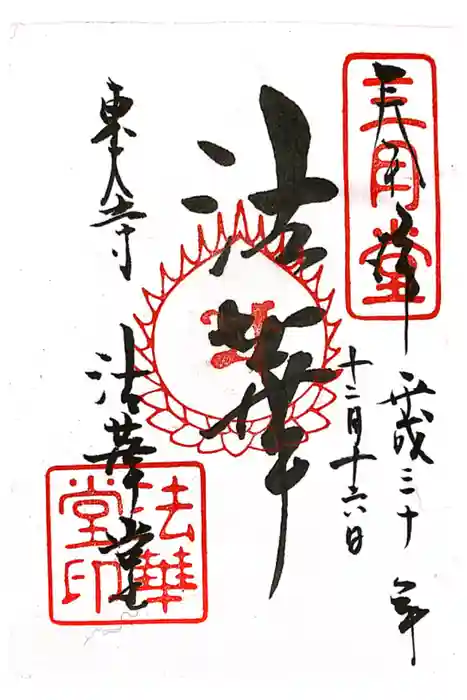 奉拝
三月堂
平成三十年
十二月十六日
法華
東大寺
法華堂
法華堂印